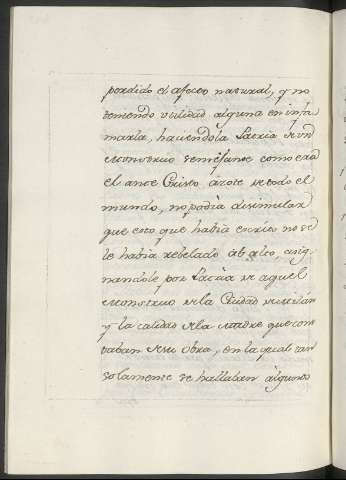 perdido el afecto natural, y no
teniendo utilidad alguna en infa
marla, haciendola Patria de un
Monstruo semejante como era
el ante Cristo ázote de todo el
mundo, no podia disimular
que esto que habia escrito no se
le habia rebelado ab alto, asig
nandole por Patria de aquel
Monstruo de la Ciudad de Milán
y la calidad de la Madre que cons
taban de su obra, en la qual tan
solamente se hallaban álgunos